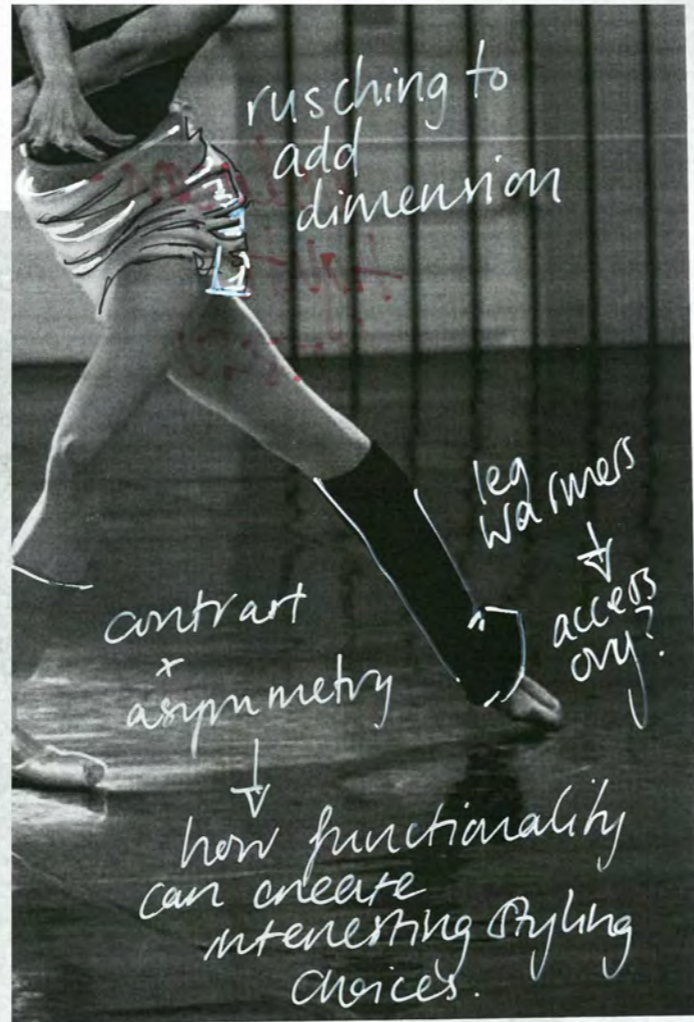 rusching to
add
dimension
leg
warmers
↓
access
ory?
contrast
+
asymmetry
↓
how functionality
can create
interesting styling
choices.